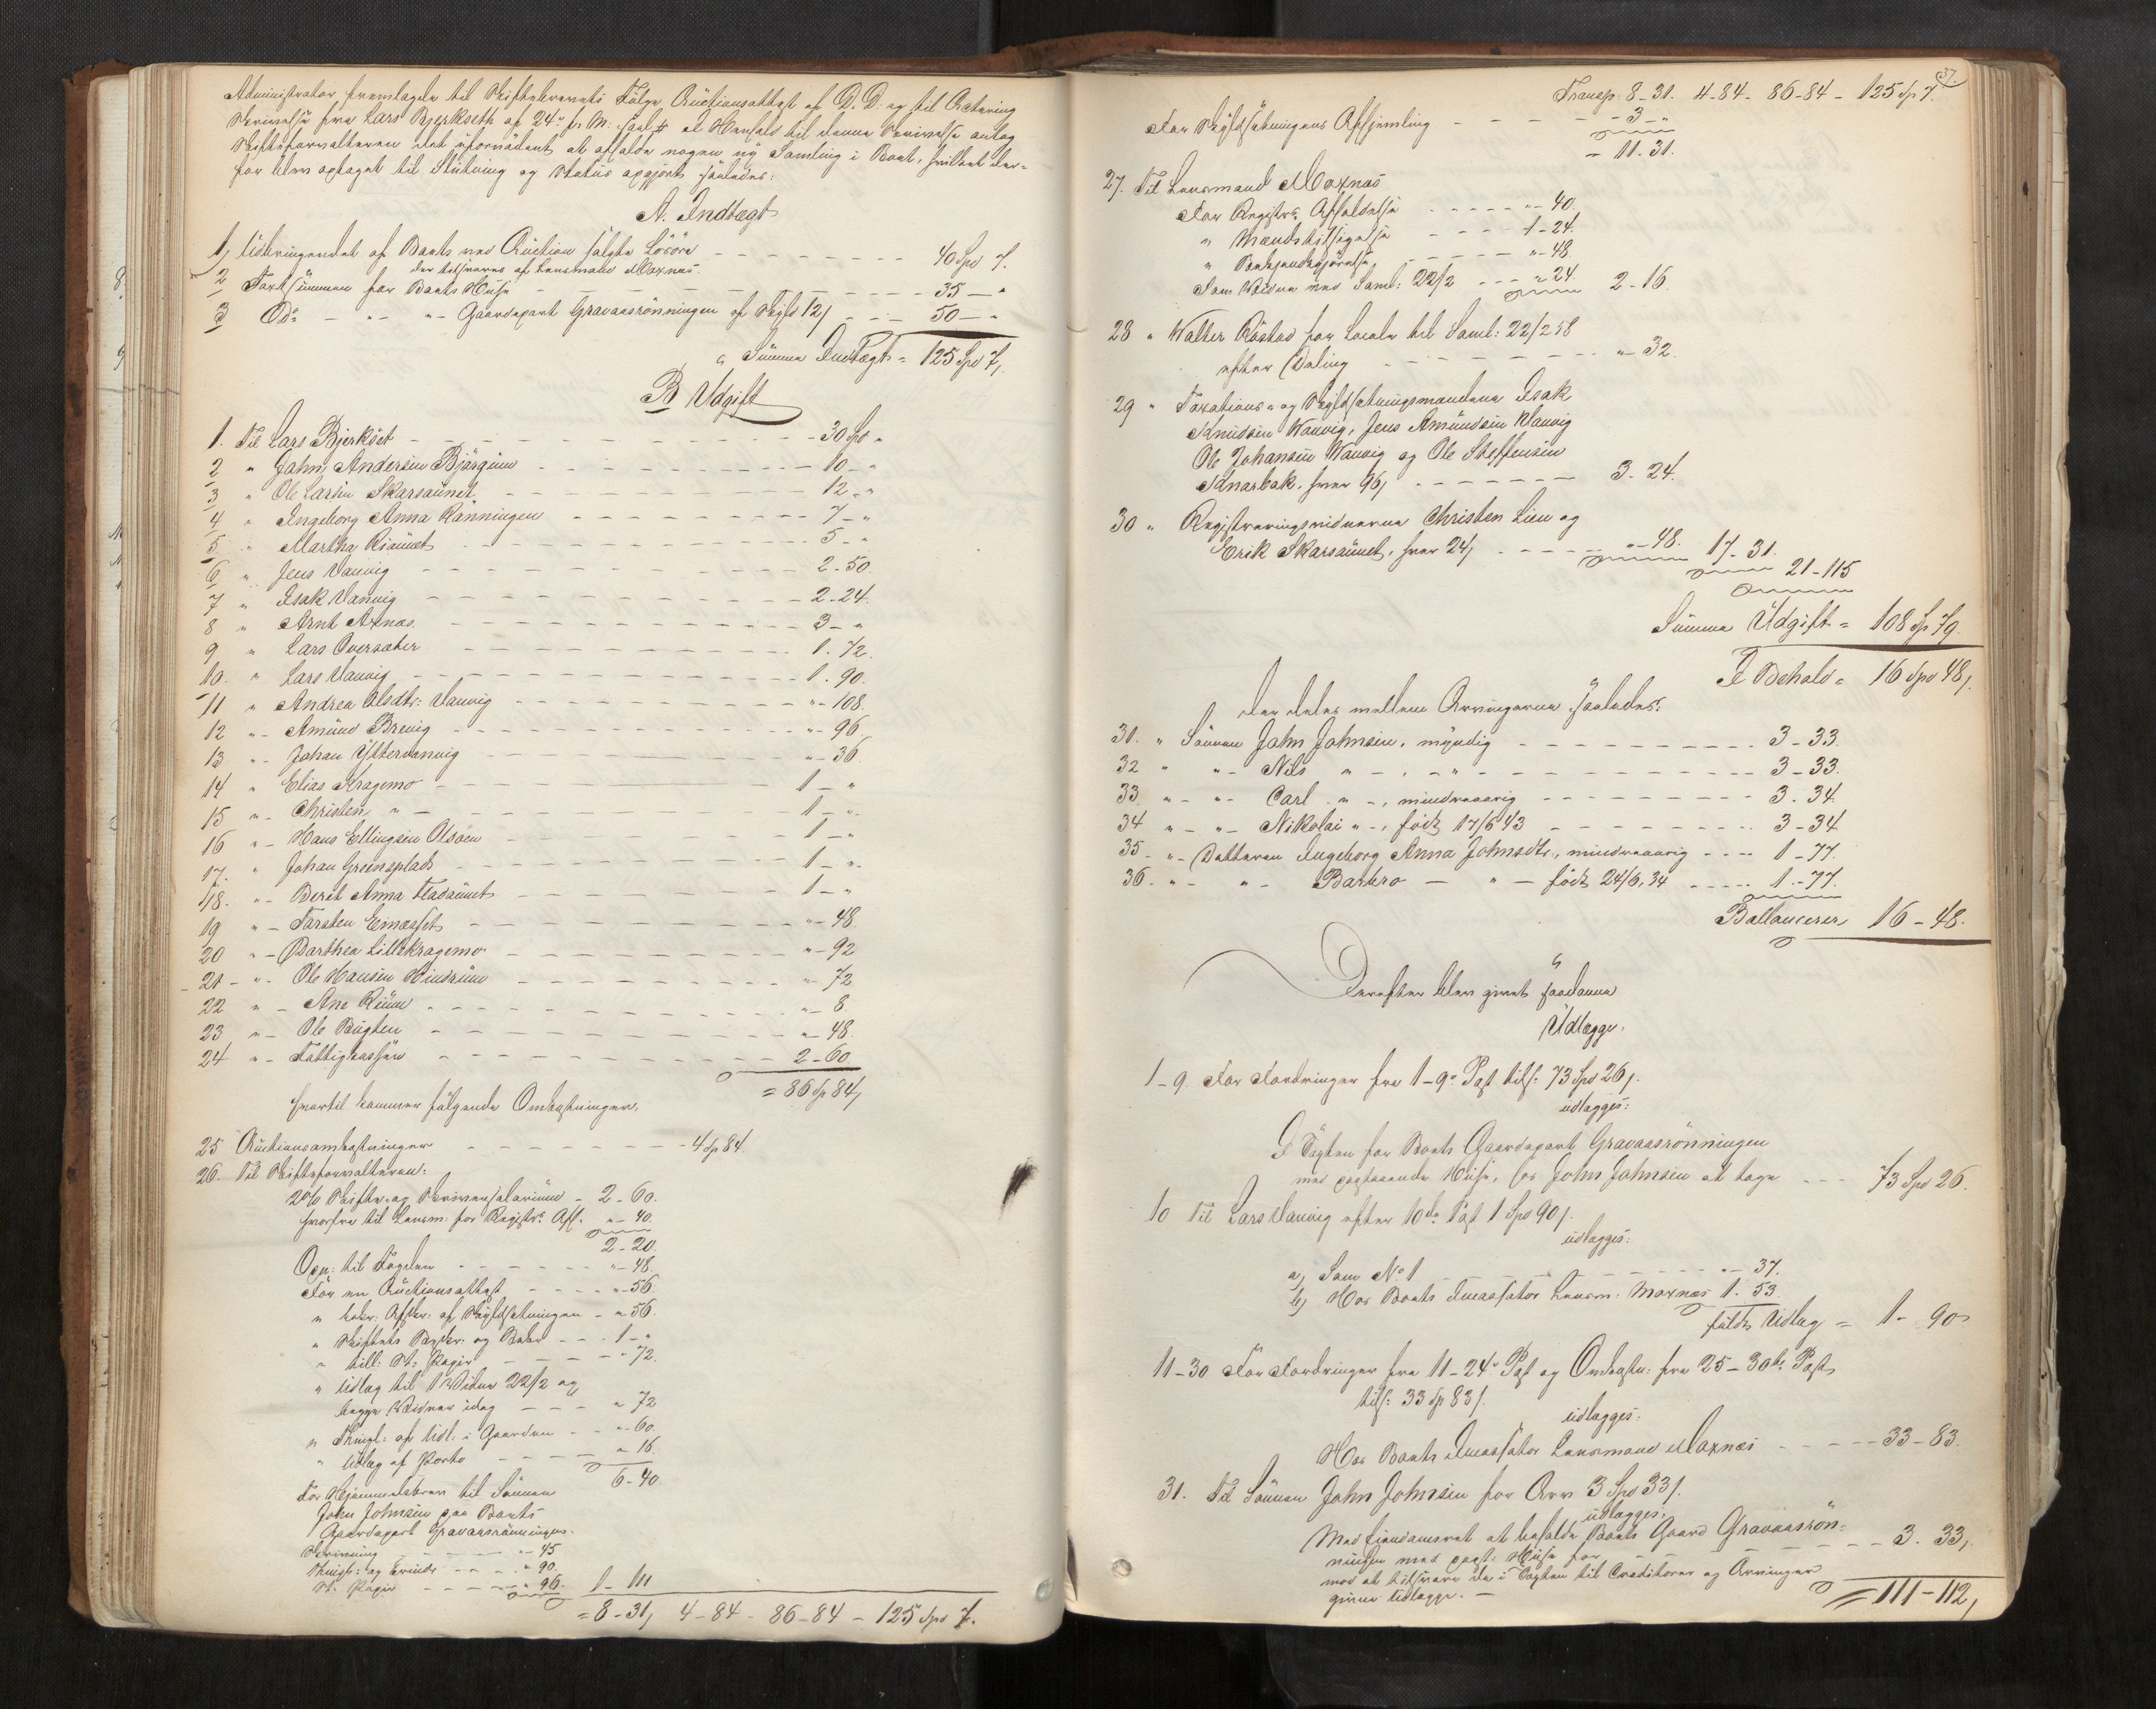 Administrator fremlagde til Skiftebrevets Følge Auctionsattest af D. D. og til Actering
Skrivelse fra Lars Bjerkseth af 24de f. M. Paa et Henhold til denne Skrivelse antog
Skifteforvalteren det ufornødent at afholde nogen ny Samling i Boet, hvilket der-
for blev optaget til Slutning og Status opgjort saaledes:
A. Indtægt
1, Udbringendet af Boets ved Auction solgte Løsøre 40 Spd 7.
der tilsvares af Lensmand Moxnæs
2 Taxtsummen for Boets Huse 35 — "
3 Do — " — " Gaardepart Gravaasrønningen af Skyld 12/ 50 — "
Summa Indtægt = 125 Spd 7,
B Udgift
1. Til Lars Bjerkset 30 Spd "
2 " John Andersen Bjørgum 10 — "
3 " Ole Larsen Skarsaunet 12 — "
4 " Ingeborg Anna Rønningen 7 — "
5 " Martha Riaunet 5 — "
6 " Jens Vanvig 2 - 50
7 " Isak Vanvig 2 - 24.
8 " Arnt Axnæs 3 — "
9 " Lars Oversæter 1. 72.
10. " Lars Vanvig 1. 90.
11 " Andrea Olsdtr: Vanvig " - 108.
12 " - Amund Brevig " - 96.
13 " - Johan Yttervanvig " - 36
14 " Elias Kragemo 1 — "
15 " - Christen " — 1 — "
16 " - Hans Ellingsen Olsøen 1 — "
17. " Johan Greensplads 1 — "
18. " - Berit Anna Fladaunet 1 — "
19 " — Torsten Einæsset " - 48.
20 " — Barthea Lillekragemo " - 92
21 - " - Ole Hansen Hindrum " 72
22 " — Ane Riium " - 8.
23 " — Ole Bugten " - 48.
24 " — Fattigkassen 2 - 60
= 86 Sp 84,
hvortil kommer følgende Omkostninger:
25 Auctionsomkostninger 4 Sp 84.
26. Til Skifteforvalteren:
2% Skifte- og Skriversalarium - 2 - 60.
hvorfra til Lensm: for Registr: Aff. " - 40.
2 - 20.
Opn: til Fogden " - 48.
For en Auctionsattest " - 56.
" bekr: Afskr: af Skyldsætningen - " 56.
" Skiftets Begdr: og Brev 1 - "
" till: St: Papir " - 72.
" Udlæg til 1 Vidne 22/2 og
begge Vidner idag " 72
" Thingl: af Udl: i Gaarden " - 60.
" Udlæg af Porto " 16.
6 - 40.
For Hjemmelsbrev til Sønnen
John Johnsen paa Boets
Gaardepart Gravaasrønningen.
Skrivning " - 45
Thingl: og Erindr " 90.
St: Papir " 96. 1 - 111
= 8 - 31, 4 - 84 - 86 - 84 - 125 Spd 7.
37.
Transp: 8 - 31. 4 - 84 - 86 - 84 - 125 Sp 7.
For Skyldsætningens Afhjemling 3 — "
= 11 - 31.
27. Til Lensmand Moxnæs
For Registrs Afholdelse " - 40.
" Mændstilsigelse 1 - 24.
" Bekjendtgjørelse " - 48.
Som Vidne ved Saml: 22/2 " 24. 2 - 16.
28 " Walter Røstad for Locale til Saml: 22/2 58
efter Deling " - 32.
29 " Taxations- og Skyldsætningsmændene Isak
Knudsen Wanvig, Jens Amundsen Wanvig
Ole Johansen Wanvig og Ole Steffensen
Schnarbak, hver 96, 3 - 24.
30 " Registreringsvidnerne Christen Lien og
Erik Skarsaunet, hver 24, " - 48. 17 - 31.
21 - 115
Summa Udgift = 108 Sp 79.
I Behold = 16 Spd 48,
der deles mellem Arvingerne saaledes:
31. " Sønnen John Johnsen, myndig 3 - 33.
32 " " - Nils " — , — " 3 - 33.
33 " - " - Carl " —, mindreaarig 3. 34.
34 " — " — Nikolai " —, født 17/6 43 3 - 34
35 - " - Datteren Ingeborg Anna Johnsdtr, mindreaarig 1 - 77.
36 - " - " - Barbro — " — født 24/6, 34 1 - 77.
Ballancerer 16 - 48.
Derefter blev givet saadanne
Udlægge.
1 - 9. For Fordringer fra 1 - 9de Post tils: 73 Spd 26,.
udlægges:
I Taxten for Boets Gaardepart Gravaasrønningen
med paastaaende Huse, hos John Johnsen at tage 73 Spd 26.
10 Til Lars Vanvig efter 10de Post 1 Spd 90,.
udlægges:
a, Som No 1 " - 37.
b, Hos Boets Incassator Lensm: Moxnæs 1. 53.
fuldt Udlæg = 1 - 90
11 - 30 For Fordringer fra 11 - 24de Post og Omkostn: fra 25 - 30te Post
tils: 33 Sp 83,.
udlægges:
Hos Boets Incassator Lensmand Moxnæs 33 - 83.
31. Til Sønnen John Johnsen for Arv 3 Spd 33,.
udlægges:
Med Eiendomsret at beholde Boets Gaard Gravaasrøn-
ningen med paast: Huse for 3. 33,.
mod at tilsvare de i Taxten til Creditorer og Arvinger
givne Udlægge. —
= 111 - 112,